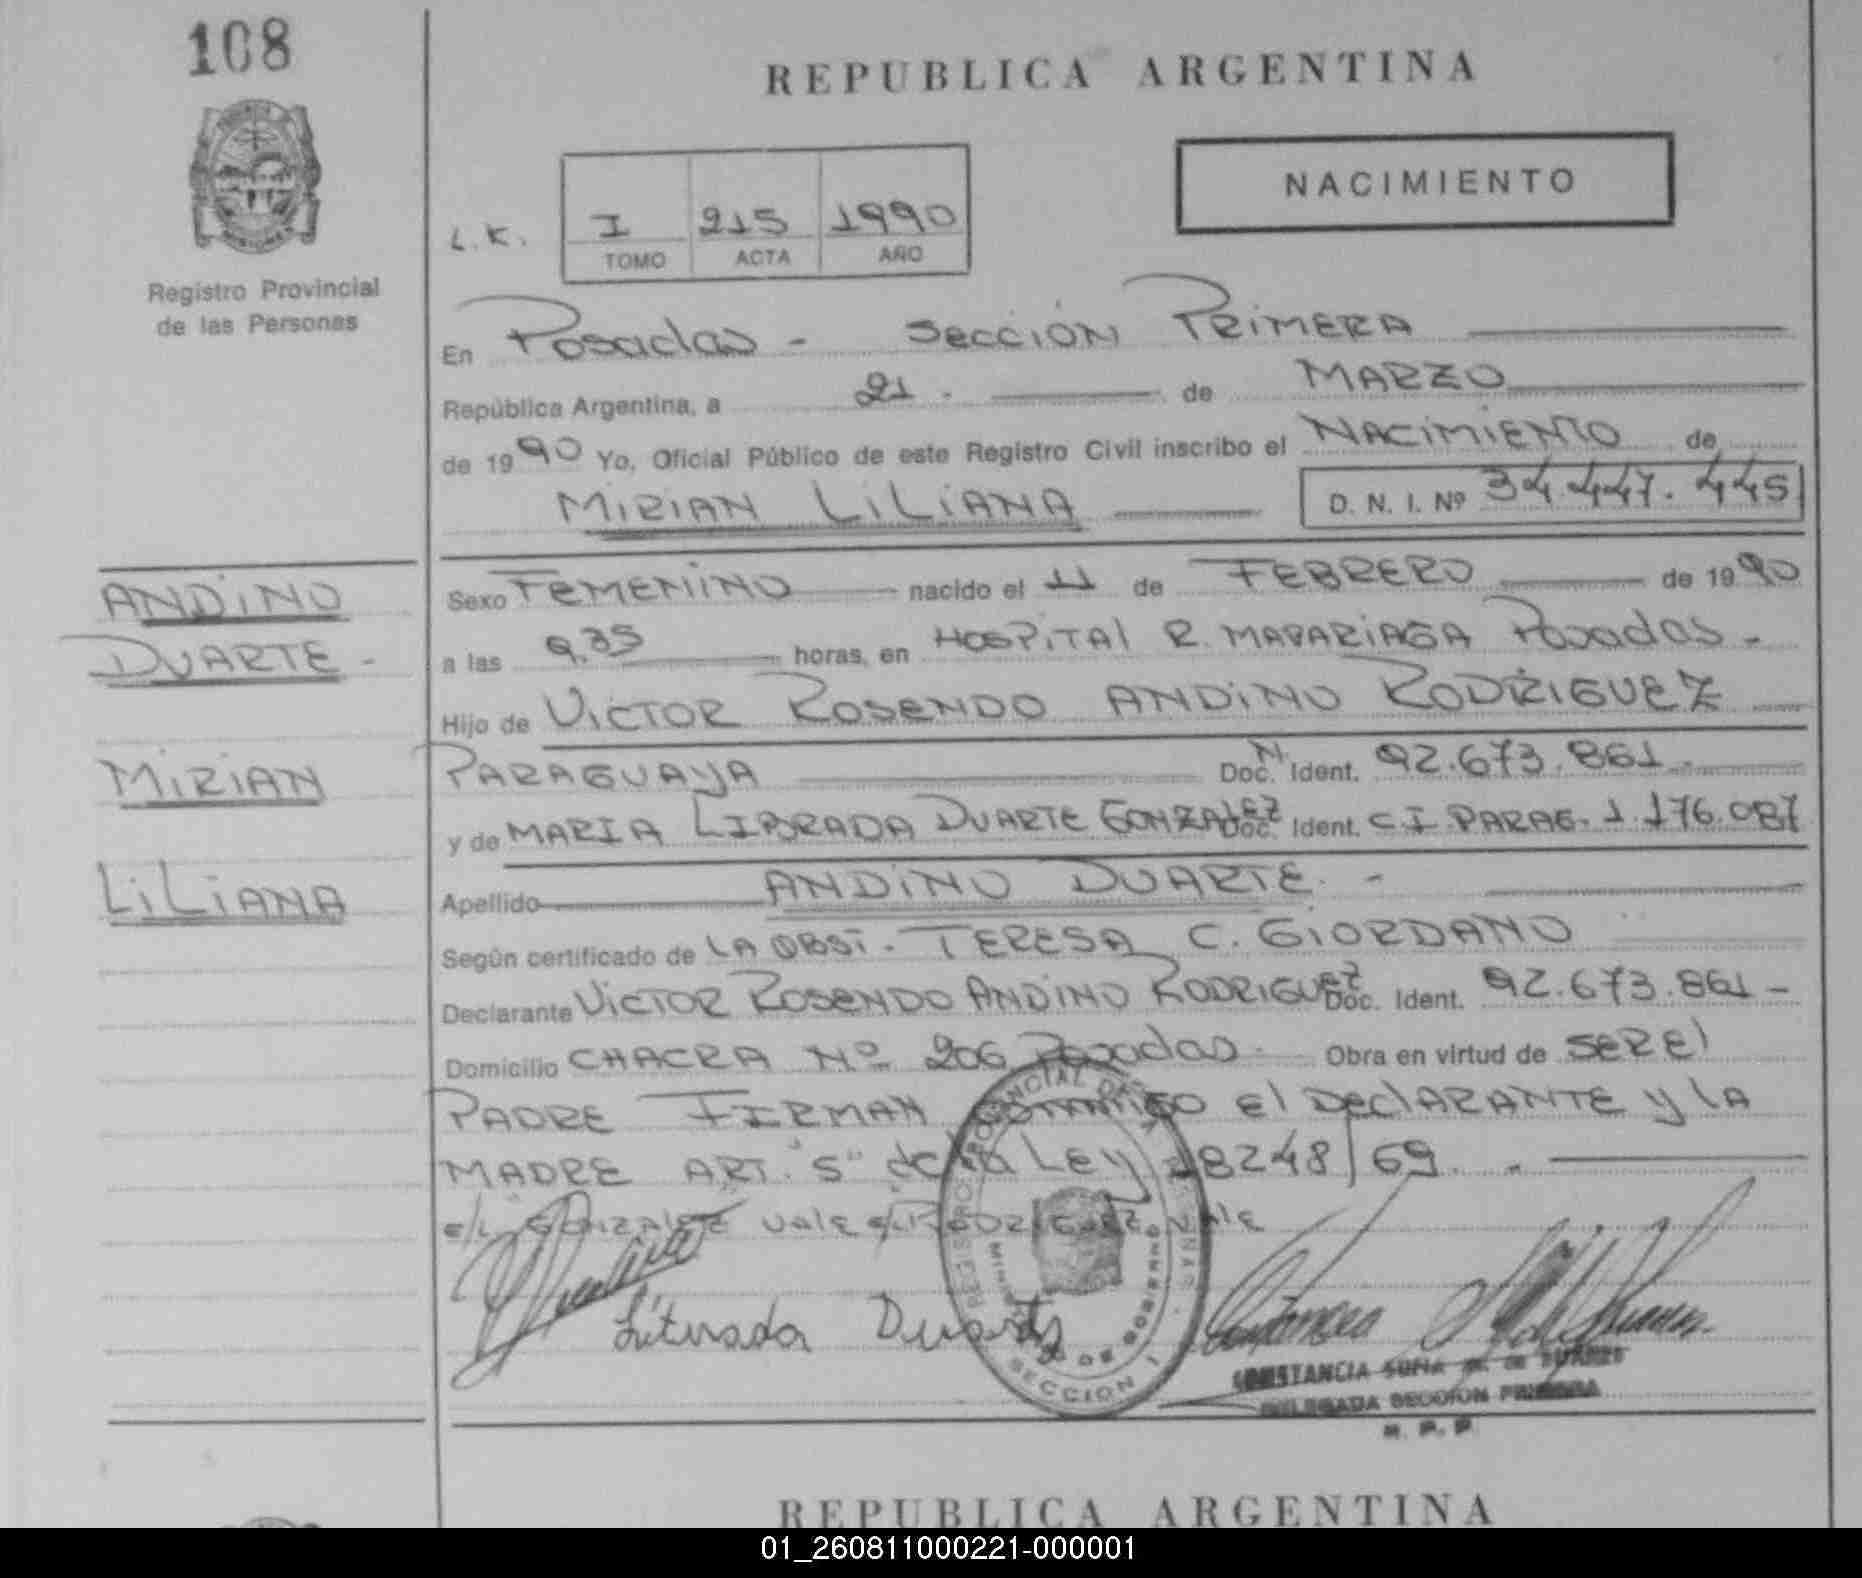 108
REPUBLICA ARGENTINA
NACIMIENTO
L.K. I 215 1990
TOMO ACTA AÑO
MISIONES
Registro Provincial
de las Personas
En Posadas - Sección Primera
República Argentina, a 21. de MARZO
de 1990 Yo, Oficial Público de este Registro Civil inscribo el NACIMIENTO de
MIRIAN LILIANA D. N. I. Nº 34.447.445
ANDINO
DUARTE -
MIRIAN
LILIANA
Sexo FEMENINO nacido el 11 de FEBRERO de 1990
a las 9.35 horas, en HOSPITAL R. MADARIAGA Posadas -
Hijo de VICTOR ROSENDO ANDINO RODRIGUEZ
PARAGUAYA Doc. N. Ident. 92.673.861.-
y de MARIA LIBRADA DUARTE GONZALEZ Doc. Ident. C.I. PARAG. 1.176.087
Apellido ANDINO DUARTE. -
Según certificado de LA OBST. TERESA C. GIORDANO
Declarante VICTOR ROSENDO ANDINO RODRIGUEZ Doc. Ident. 92.673.861 -
Domicilio CHACRA Nº 206 Posadas Obra en virtud de SER El
PADRE FIRMAN CONMIGO El DEClARANTE y lA
MADRE ART. "5" de la LEy 18248/69. -
E/L GONZALEZ VAlE E/L RODRIGUEZ VAlE
Librada Duarte
REGISTRO PROVINCIAL DE
DE GOBIERNO
SECCION 1
CONSTANCIA
DELEGADA SECCION PRIMERA
R. P. P.
REPUBLICA ARGENTINA
01_260811000221-000001